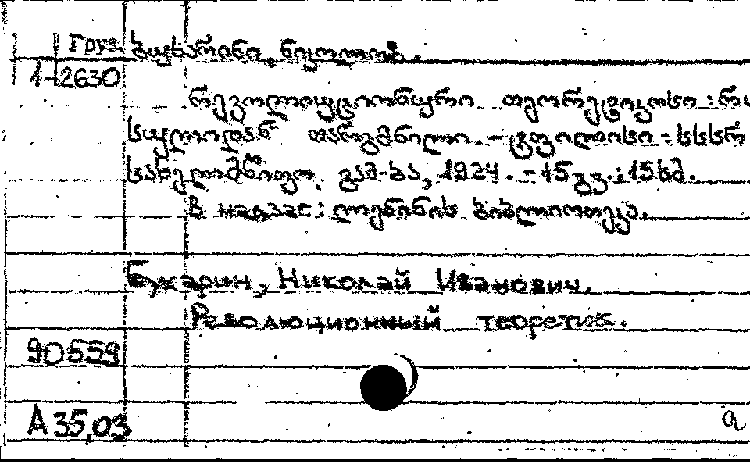 Груз. ბუხარინი, ნიკოლოზ.
1-2630
რევოლიუციონური თეორეტიკოსი : რუ
სულიდან თარგმნილი. – ტფილისი : სსსრ
სახელმწიფო. გამ-ბა, 1924. – 15 გვ. ; 15 სმ.
В надзаг: ლენინის ბიბლიოთეკა.
Бухарин, Николай Иванович.
Революционный теоретик.
90559
А 35,03
a